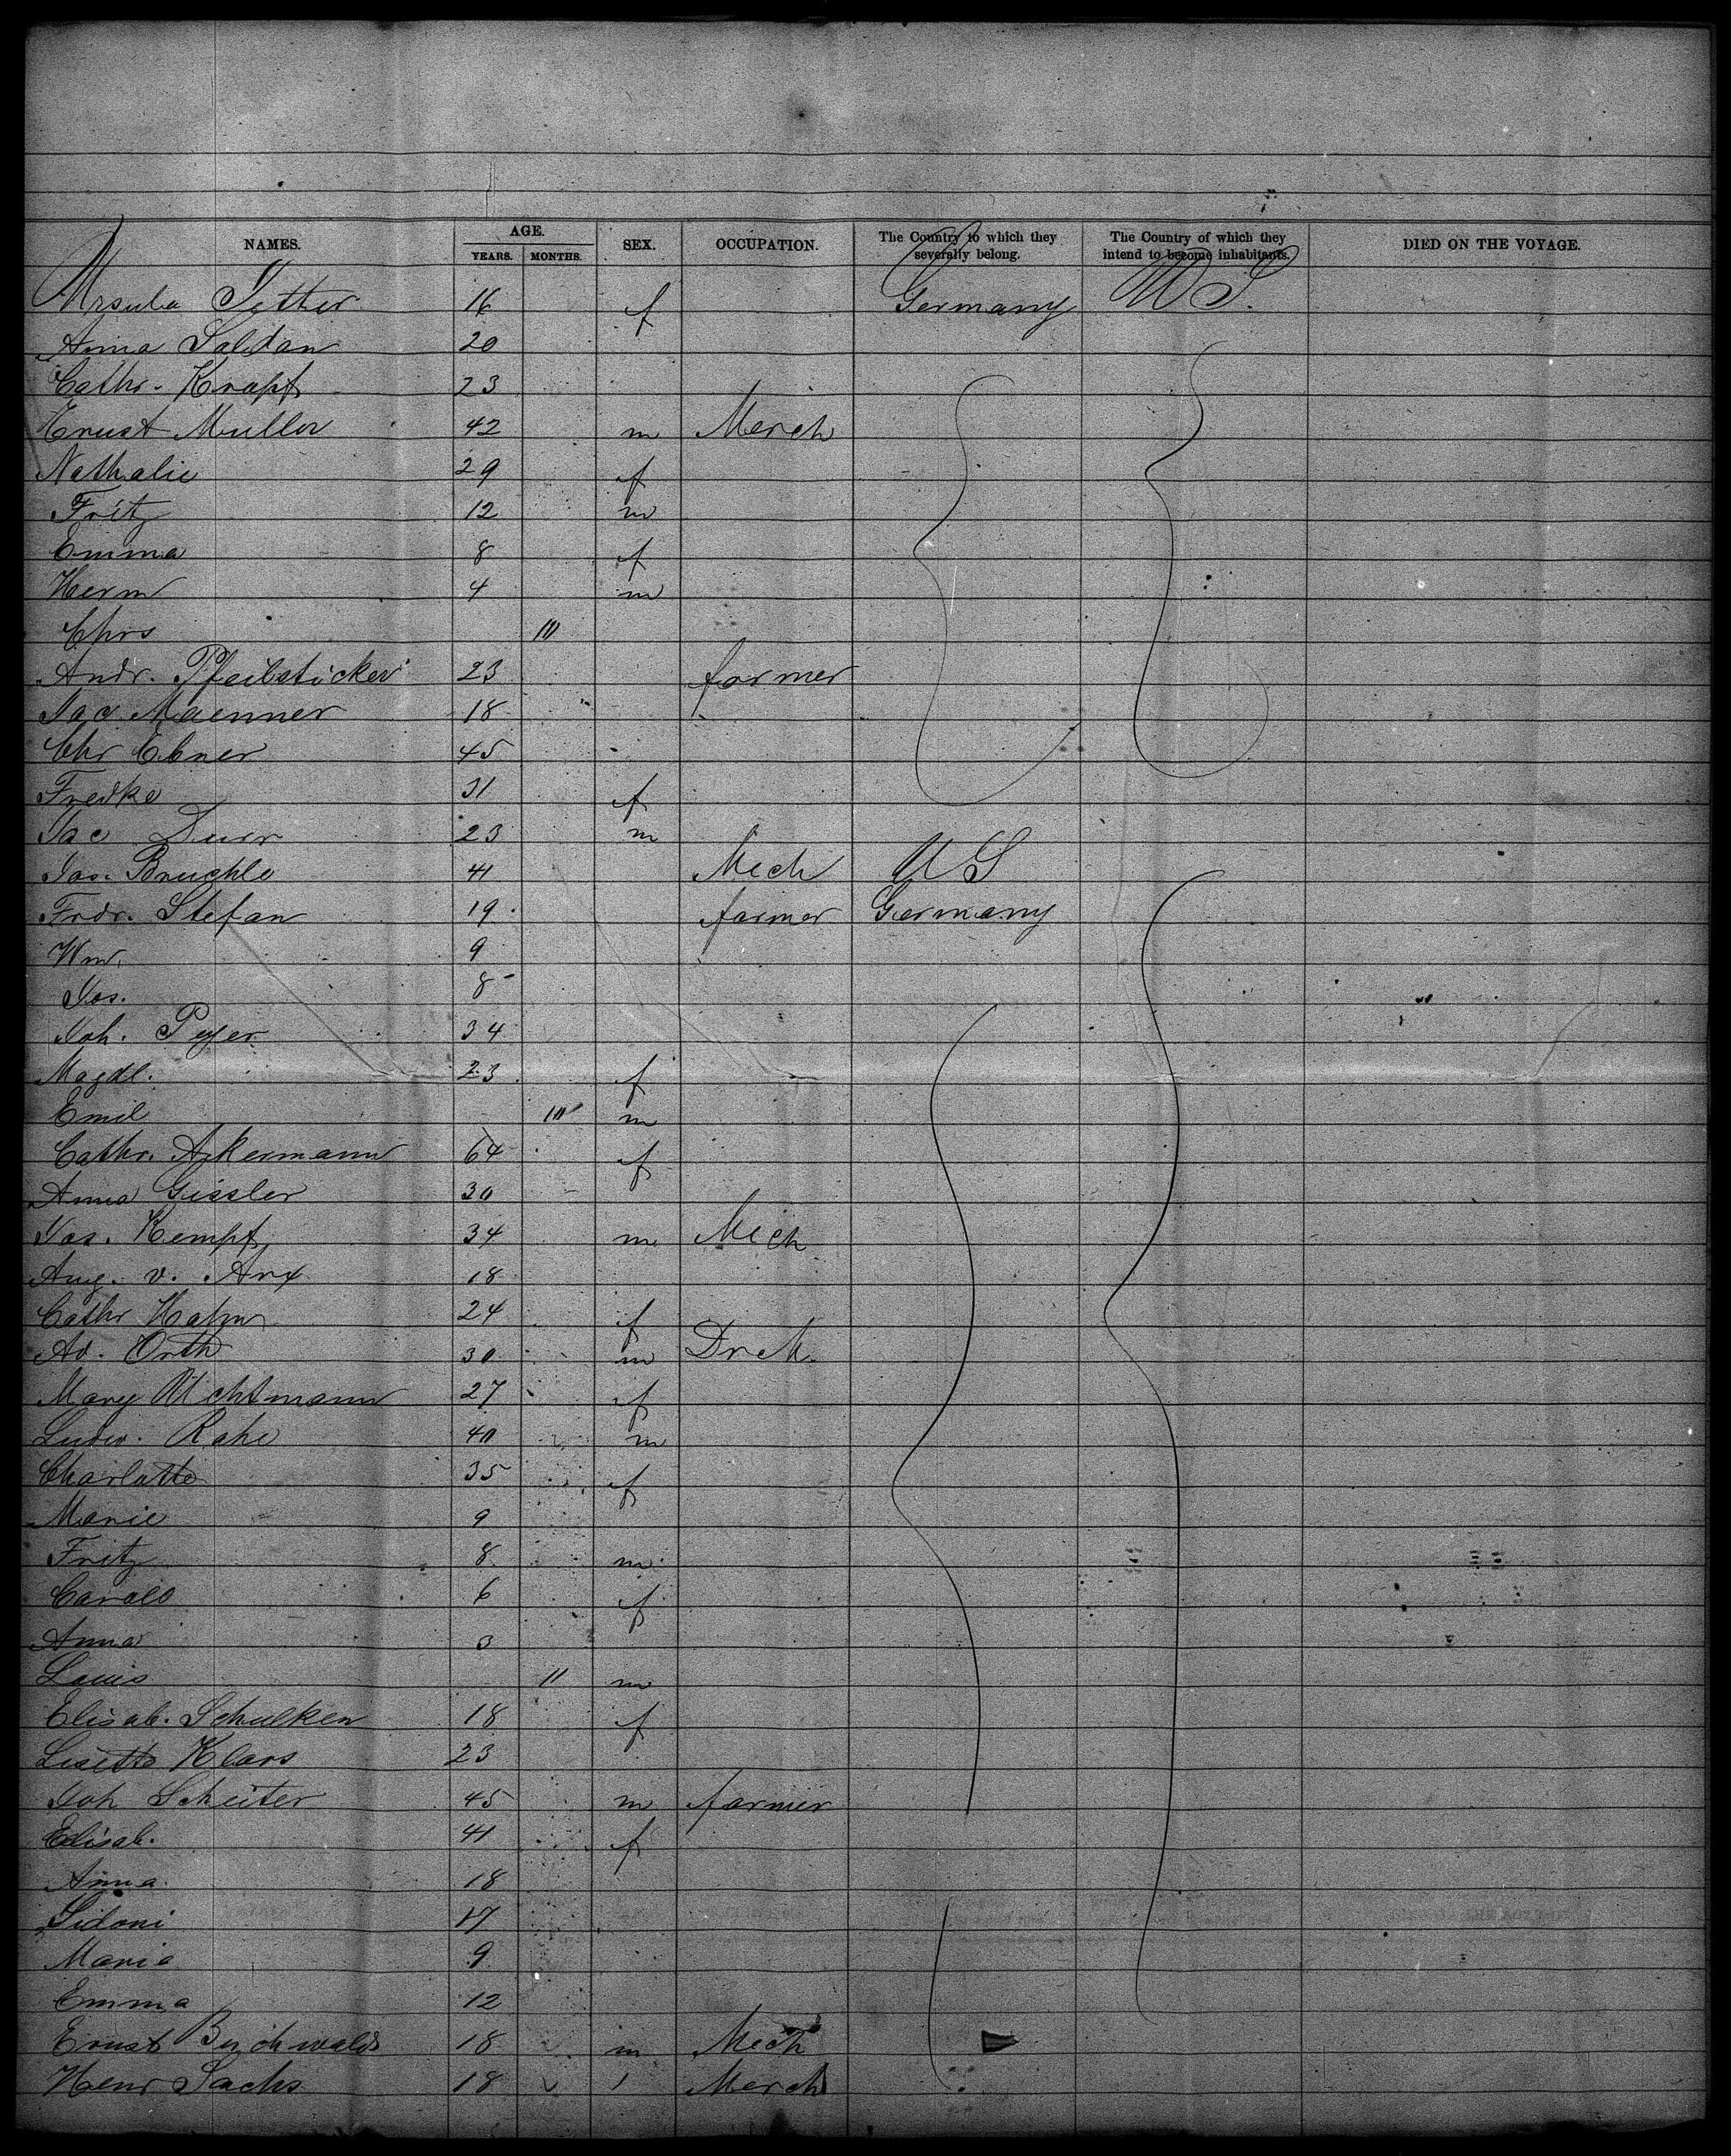 NAMES. AGE. SEX. OCCUPATION. The Country to which they severally belong. The Country of which they intend to become inhabitants. DIED ON THE VOYAGE.
YEARS. MONTHS.
Ursula Jetter 16 f Germany U S.
Anna Soldan 20
Cathr. Krapf 23
Ernst Muller 42 m Merch
Nathalie 29 f
Fritz 12 m
Emma 8 f
Herm 4 m
Chrs
Andr. Pfeilsticker 23 farmer
Jac Maenner 18
Chr Ebner 45
Fredke 31 f
Jac Durr 23 m
Jos. Bruchle 41 Mech U S
Frdr. Stefan 19 farmer Germany
Wm. 9
Jos. 8
Joh. Peyer 34
Magdl. 23 f
Emil m
Cathr. Akermann 64 f
Anna Gissler 30
Jos. Kempf 34 m Mech
Aug. v. Arx 18
Cathr Hahn 24 f
Ad. Orth 30 m
Mary Uchtmann 27 f
Ludw. Rahe 40 m
Charlotte 35 f
Marie 9
Fritz 8 m
Carole 6 f
Anna 3
Louis 11 m
Elisab. Schulken 18 f
Lisette Klars 23
Joh Scheiter 45 m farmer
Elisab. 41 f
Anna 18
Sidoni 17
Maria 9
Emma 12
Ernst Buchwald 18 m Mech
Henr Sachs 18 Merch